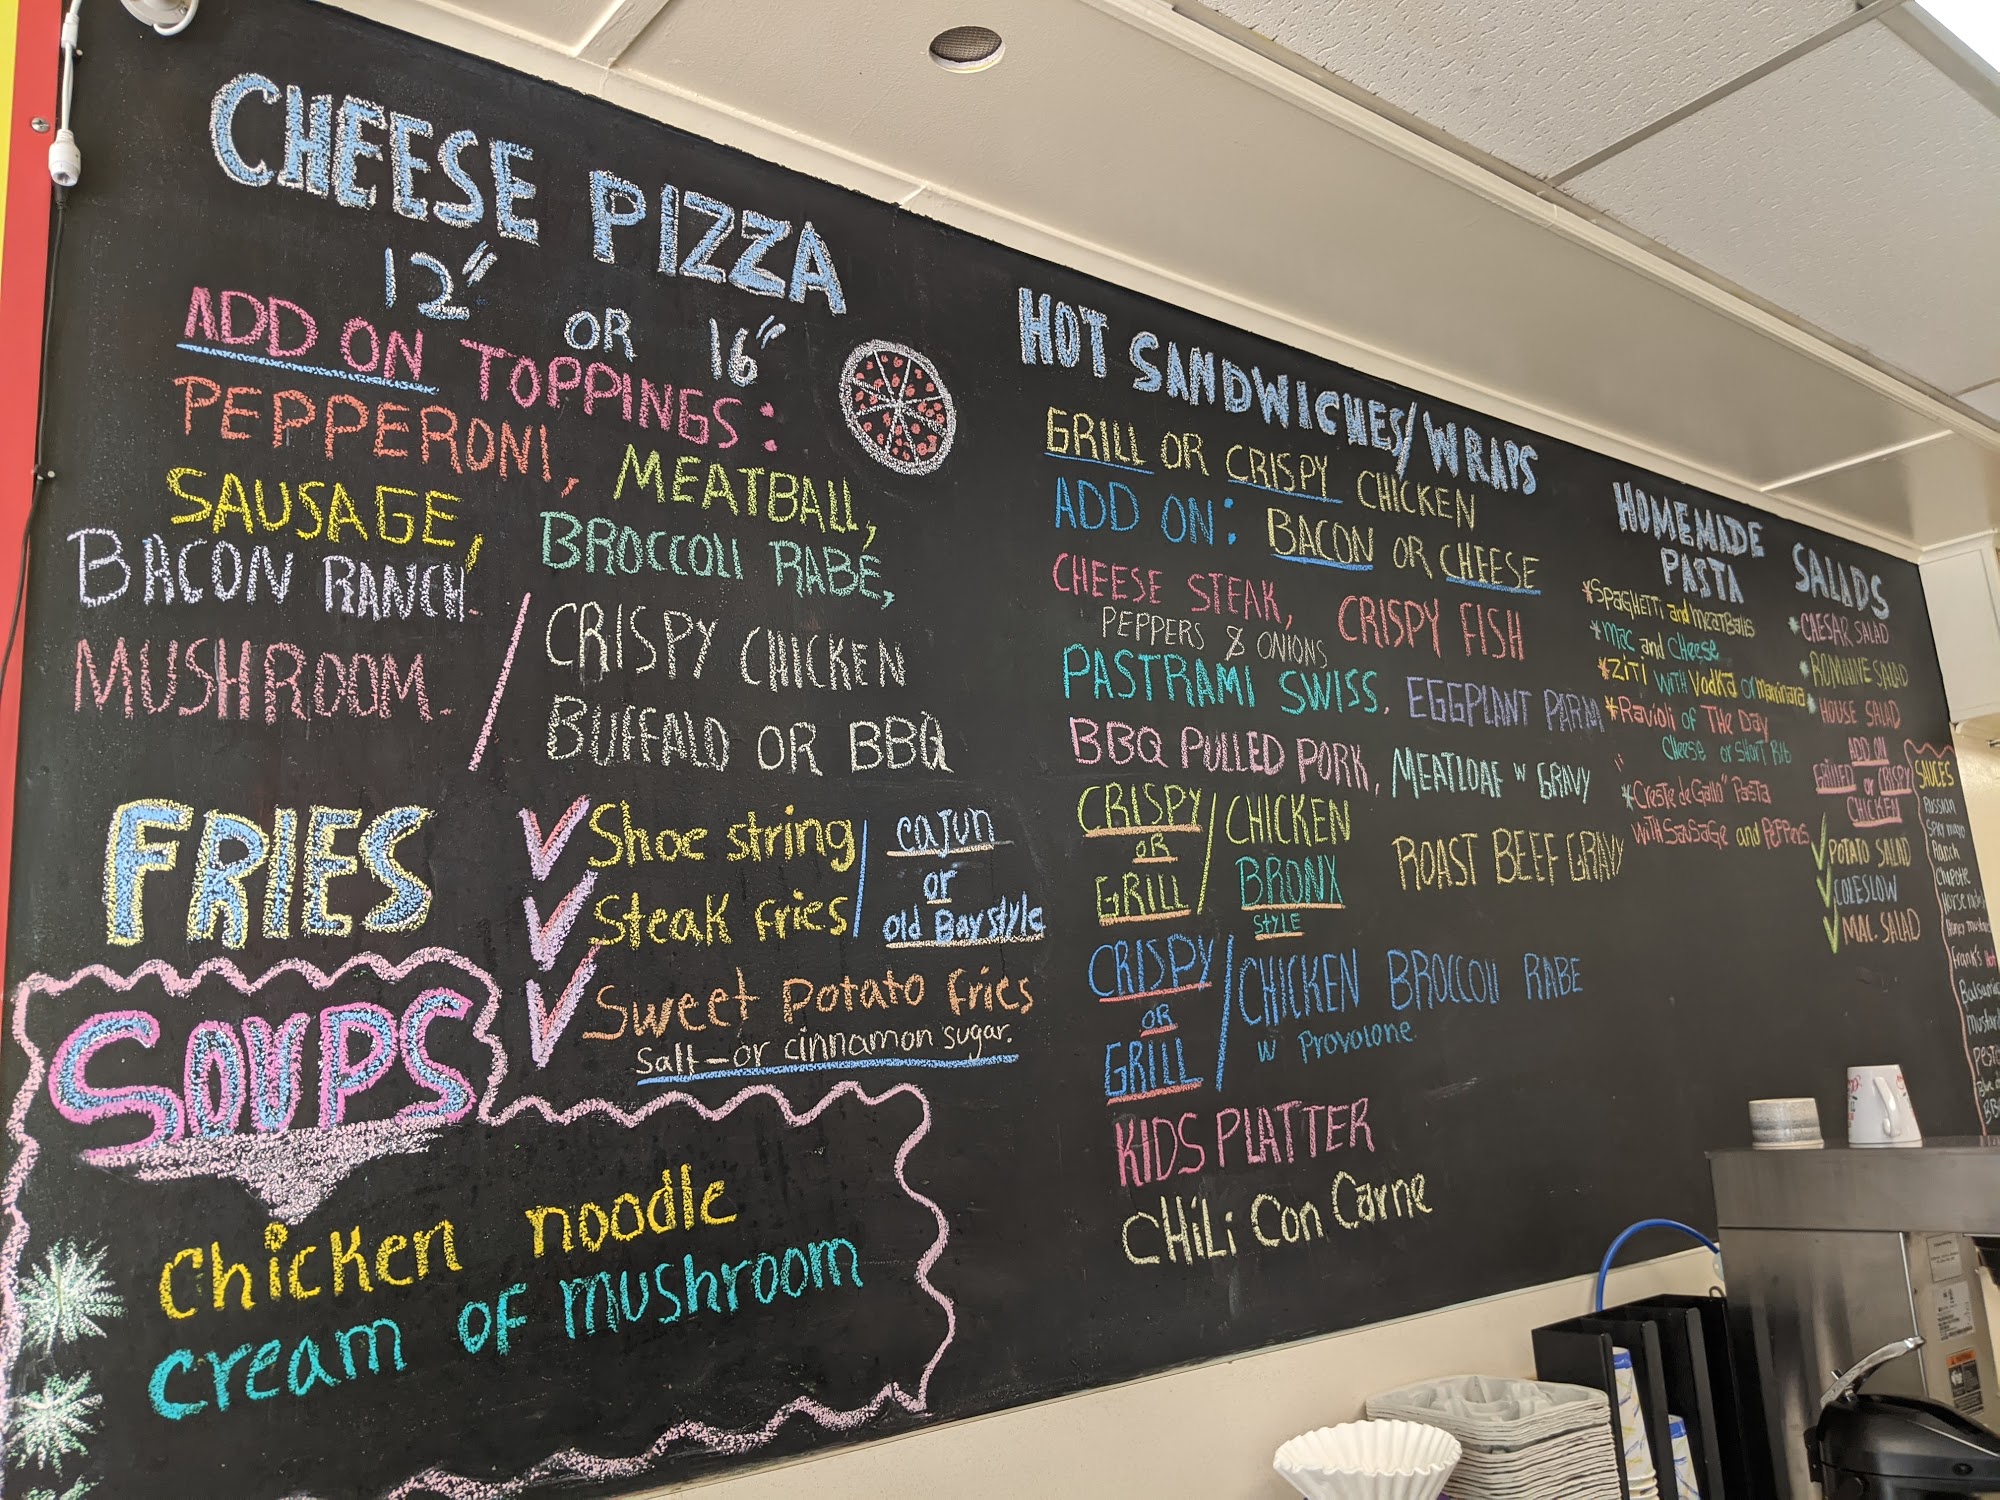 CHEESE PIZZA
12" OR 16"
ADD ON TOPPINGS:
PEPPERONI, MEATBALL,
SAUSAGE, BROCCOLI RABE,
BACON RANCH.
MUSHROOM. / CRISPY CHICKEN
BUFFALO OR BBQ
FRIES
Shoe string / cajun
or
Steak fries / Old Bay style
Sweet potato fries
Salt - or cinnamon sugar.
SOUPS
Chicken noodle
cream of mushroom
HOT SANDWICHES/WRAPS
GRILL OR CRISPY CHICKEN
ADD ON: BACON OR CHEESE
CHEESE STEAK, CRISPY FISH
PEPPERS & ONIONS
PASTRAMI SWISS, EGGPLANT PARM
BBQ PULLED PORK, MEATLOAF w GRAVY
CRISPY OR GRILL / CHICKEN BRONX STYLE
ROAST BEEF GRAVY
CRISPY OR GRILL / CHICKEN BROCCOLI RABE
w Provolone.
KIDS PLATTER
CHiLi Con Carne
HOMEMADE
PASTA
*Spaghetti and meatballs
*Mac and cheese
*ZiTi with Vodka or marinara
*Ravioli of The Day
Cheese or Short Rib
*"Creste de Gallo" Pasta
with Sausage and Peppers
SALADS
*CAESAR SALAD
*ROMAINE SALAD
*HOUSE SALAD
ADD ON
GRILLED or CRISPY
CHICKEN
POTATO SALAD
COLESLOW
MAC. SALAD
SAUCES
Russian
Spicy mayo
Ranch
Chipotle
Honey
Frank's Hot